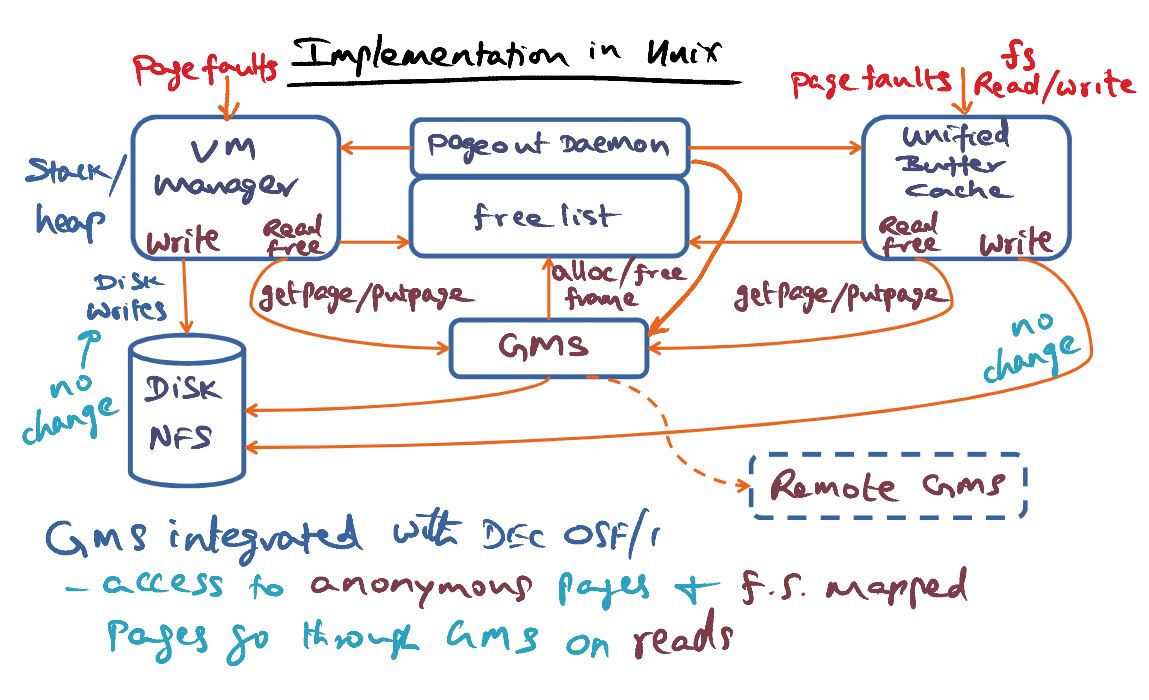 Implementation in Unix
Page faults
page faults
fs
Read/write
Stack/
heap
VM
Manager
Write
Read
free
Pageout Daemon
free list
Unified
Buffer
Cache
Read
free
Write
Disk
Writes
getpage/putpage
alloc/free
frame
getpage/putpage
GMS
no
change
no
change
DiSK
NFS
Remote GMS
GMS integrated with DEC OSF/1
- access to anonymous pages + f.s. mapped
pages go through GMS on reads